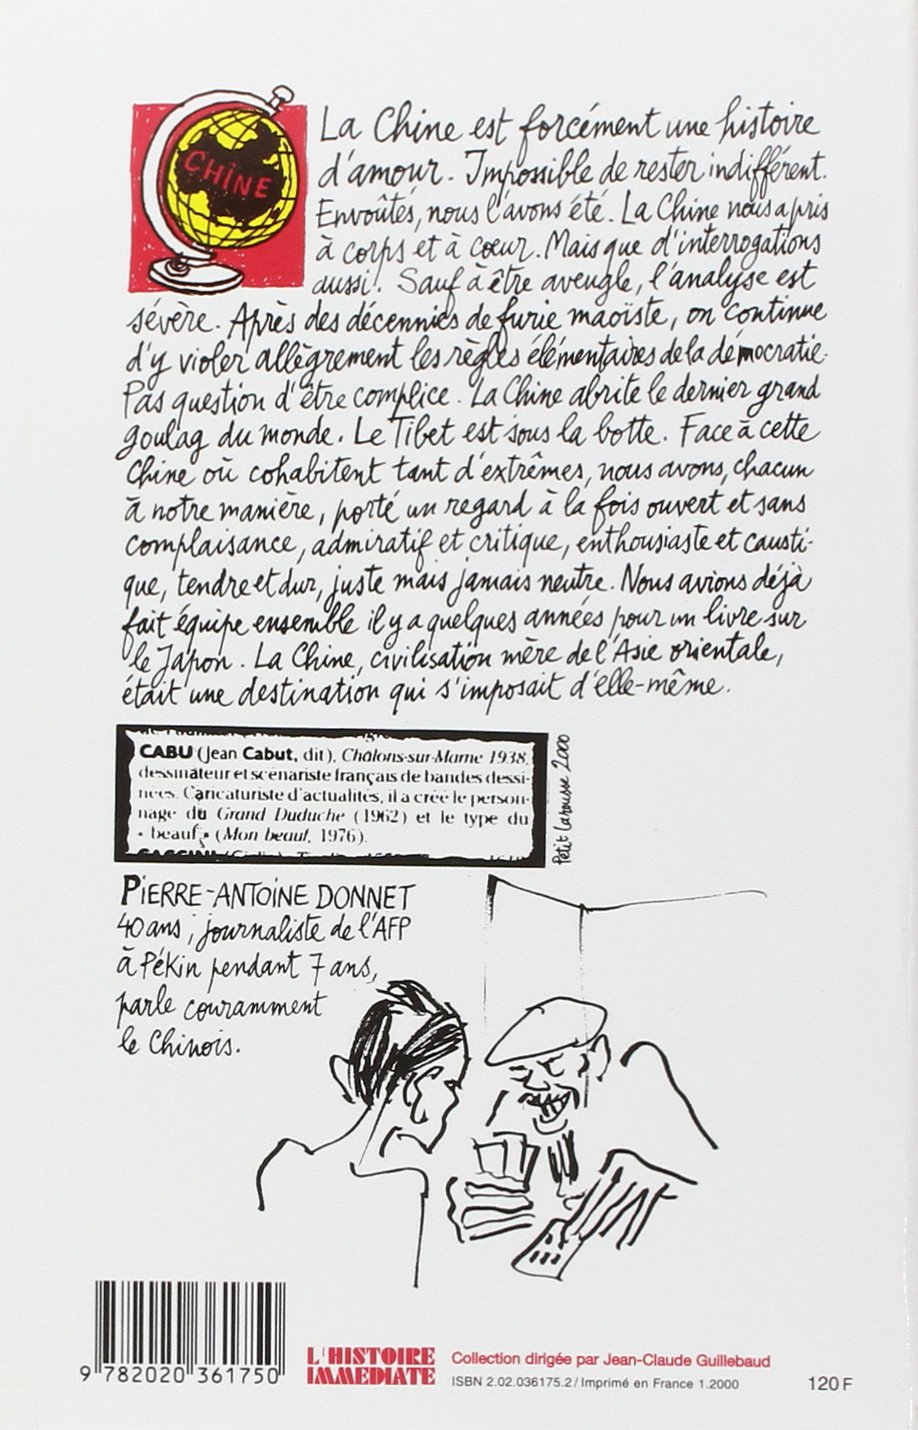 CHINE
La Chine est forcément une histoire
d'amour. Impossible de rester indifférent.
Envoûtés, nous l'avons été. La Chine nous a pris
à corps et à cœur. Mais que d'interrogations
aussi! Sauf à être aveugle, l'analyse est
sévère. Après des décennies de furie maoïste, on continue
d'y violer allègrement les règles élémentaires de la démocratie.
Pas question d'être complice. La Chine abrite le dernier grand
goulag du monde. Le Tibet est sous la botte. Face à cette
Chine où cohabitent tant d'extrêmes, nous avons, chacun
à notre manière, porté un regard à la fois ouvert et sans
complaisance, admiratif et critique, enthousiaste et causti-
que, tendre et dur, juste mais jamais neutre. Nous avions déjà
fait équipe ensemble il y a quelques années pour un livre sur
le Japon. La Chine, civilisation mère de l'Asie orientale,
était une destination qui s'imposait d'elle-même.
CABU (Jean Cabut, dit), Châlons-sur-Marne 1938,
dessinateur et scénariste français de bandes dessi-
nées. Caricaturiste d'actualités, il a créé le person-
nage du Grand Duduche (1962) et le type du
« beauf » (Mon beauf, 1976).
Petit Larousse 2000
PIERRE-ANTOINE DONNET
40 ans, journaliste de l'AFP
à Pékin pendant 7 ans,
parle couramment
le Chinois.
9 782020 361750
L'HISTOIRE
IMMEDIATE
Collection dirigée par Jean-Claude Guillebaud
ISBN 2.02.036175.2 / Imprimé en France 1.2000
120 F